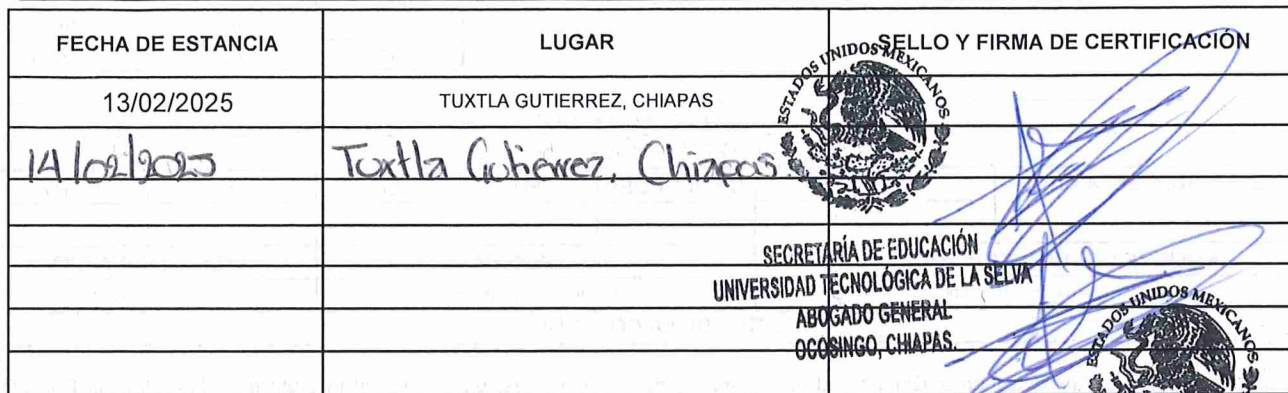 FECHA DE ESTANCIA LUGAR SELLO Y FIRMA DE CERTIFICACIÓN
13/02/2025 TUXTLA GUTIERREZ, CHIAPAS
14/02/2025 Tuxtla Gutierrez, Chiapas
ESTADOS UNIDOS MEXICANOS
SECRETARÍA DE EDUCACIÓN
UNIVERSIDAD TECNOLÓGICA DE LA SELVA
ABOGADO GENERAL
OCOSINGO, CHIAPAS.
ESTADOS UNIDOS MEXICANOS